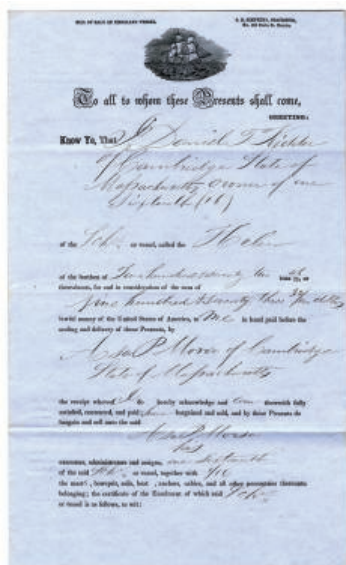 BILL OF SALE OF ENROLLED VESSEL.
To all to whom these Presents shall come,
GREETING:
Know Ye, That I Daniel T
of Cambridge State of
Massachusetts owner of one
sixteenth
of the Sch. or vessel, called the
of the burthen of Two hundred tons, or
thereabouts, for and in consideration of the sum of
hundred & Twenty three dollars
lawful money of the United States of America, to me in hand paid before the
sealing and delivery of these Presents, by
Asa P of Cambridge
State of Massachusetts
the receipt whereof I do hereby acknowledge and am therewith fully
satisfied, contented, and paid, have bargained and sold, and by these Presents do
bargain and sell unto the said
Asa P
his
executors, administrators and assigns, one sixteenth
of the said Sch. or vessel, together with
the masts, bowsprit, sails, boat, anchors, cables, and all other necessaries thereunto
belonging; the certificate of the Enrolment of which said Sch.
or vessel is as follows, to wit: